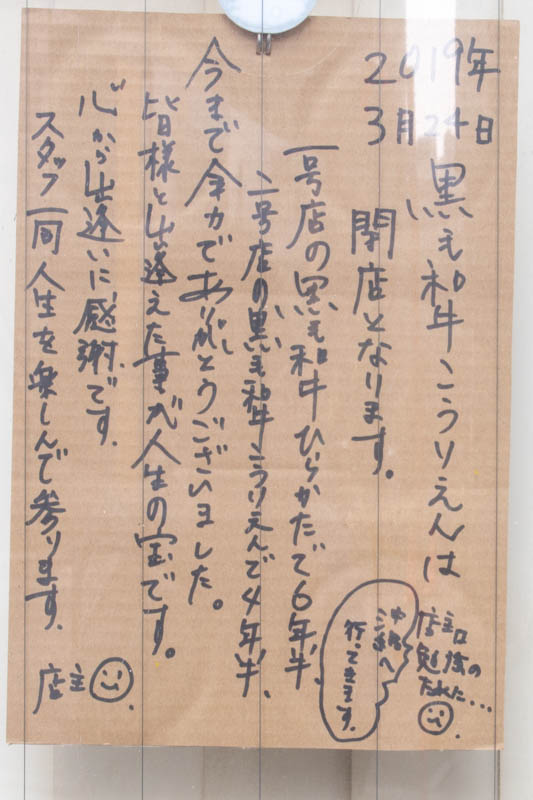 2019年
3月24日
黒毛和牛こうりえんは
閉店となります。
一号店の黒毛和牛ひらかたで6年半、
二号店の黒毛和牛こうりえんで4年半、
今まで全力でありがとうございました。
皆様と出逢えた事が人生の宝です。
心から出逢いに感謝です。
スタッフ一同人生を楽しんで参ります。
店主
店主
勉強の
ために…
へ
行ってきます。